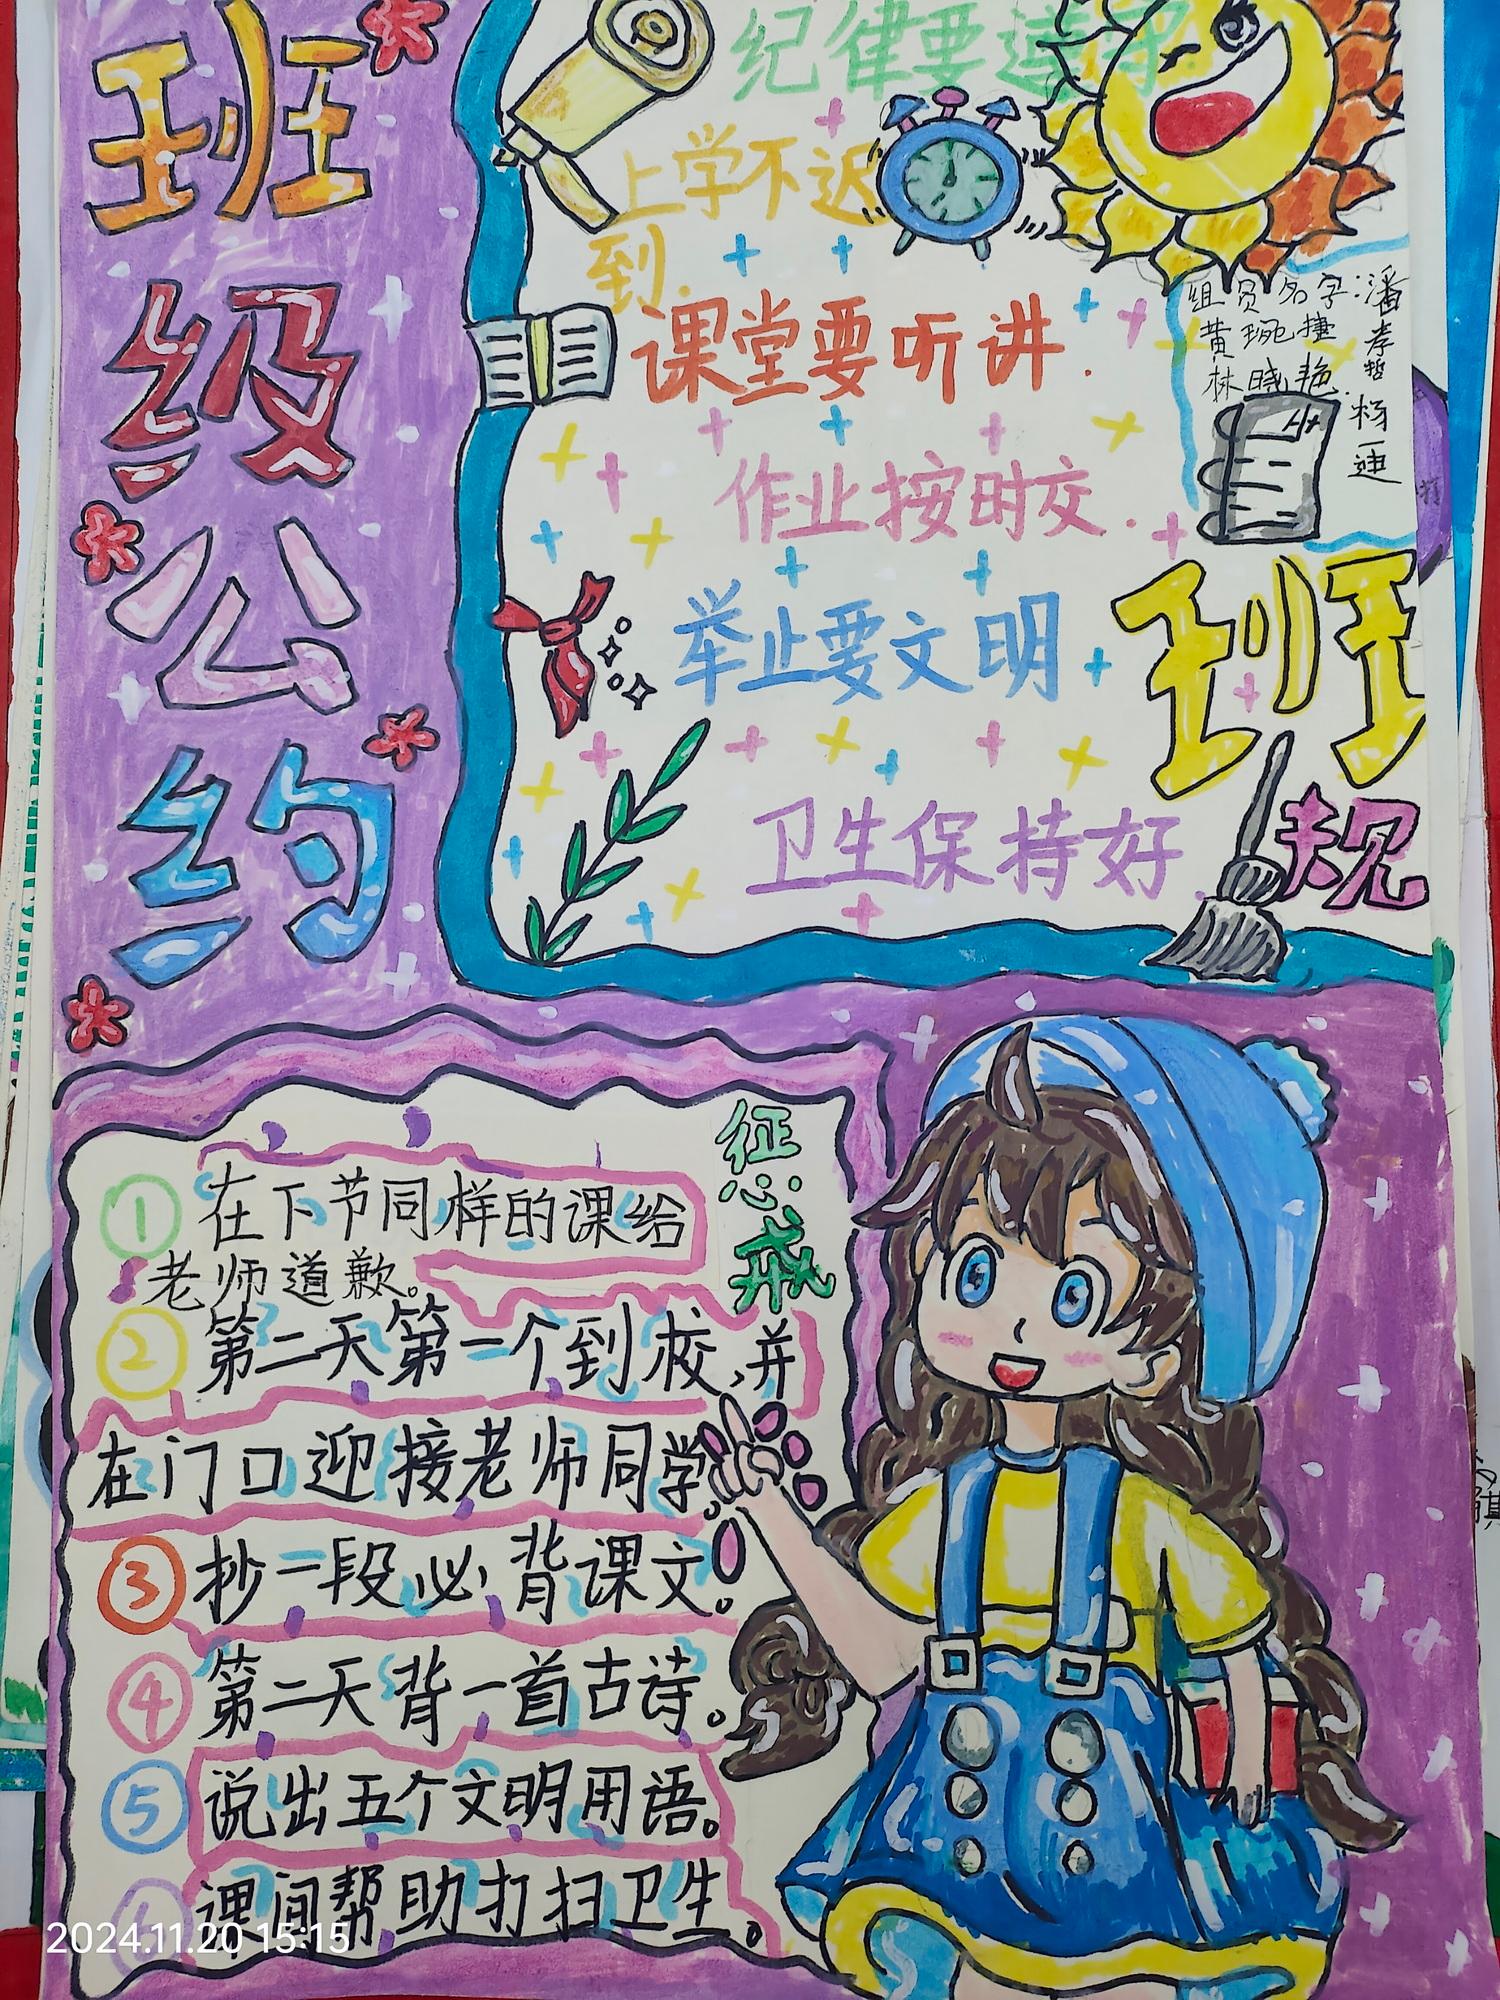 班级公约
纪律要遵守
上学不迟
到.
课堂要听讲.
作业按时交.
举止要文明
卫生保持好.
组员名字:潘孝哲
黄琬捷
林晓艳
杨一
A+
班
规
惩戒
①在下节同样的课给
老师道歉。
②第二天第一个到校,并
在门口迎接老师同学。
③抄一段必背课文。
④第二天背一首古诗。
⑤说出五个文明用语。
⑥课间帮助打扫卫生。
2024.11.20 15:15